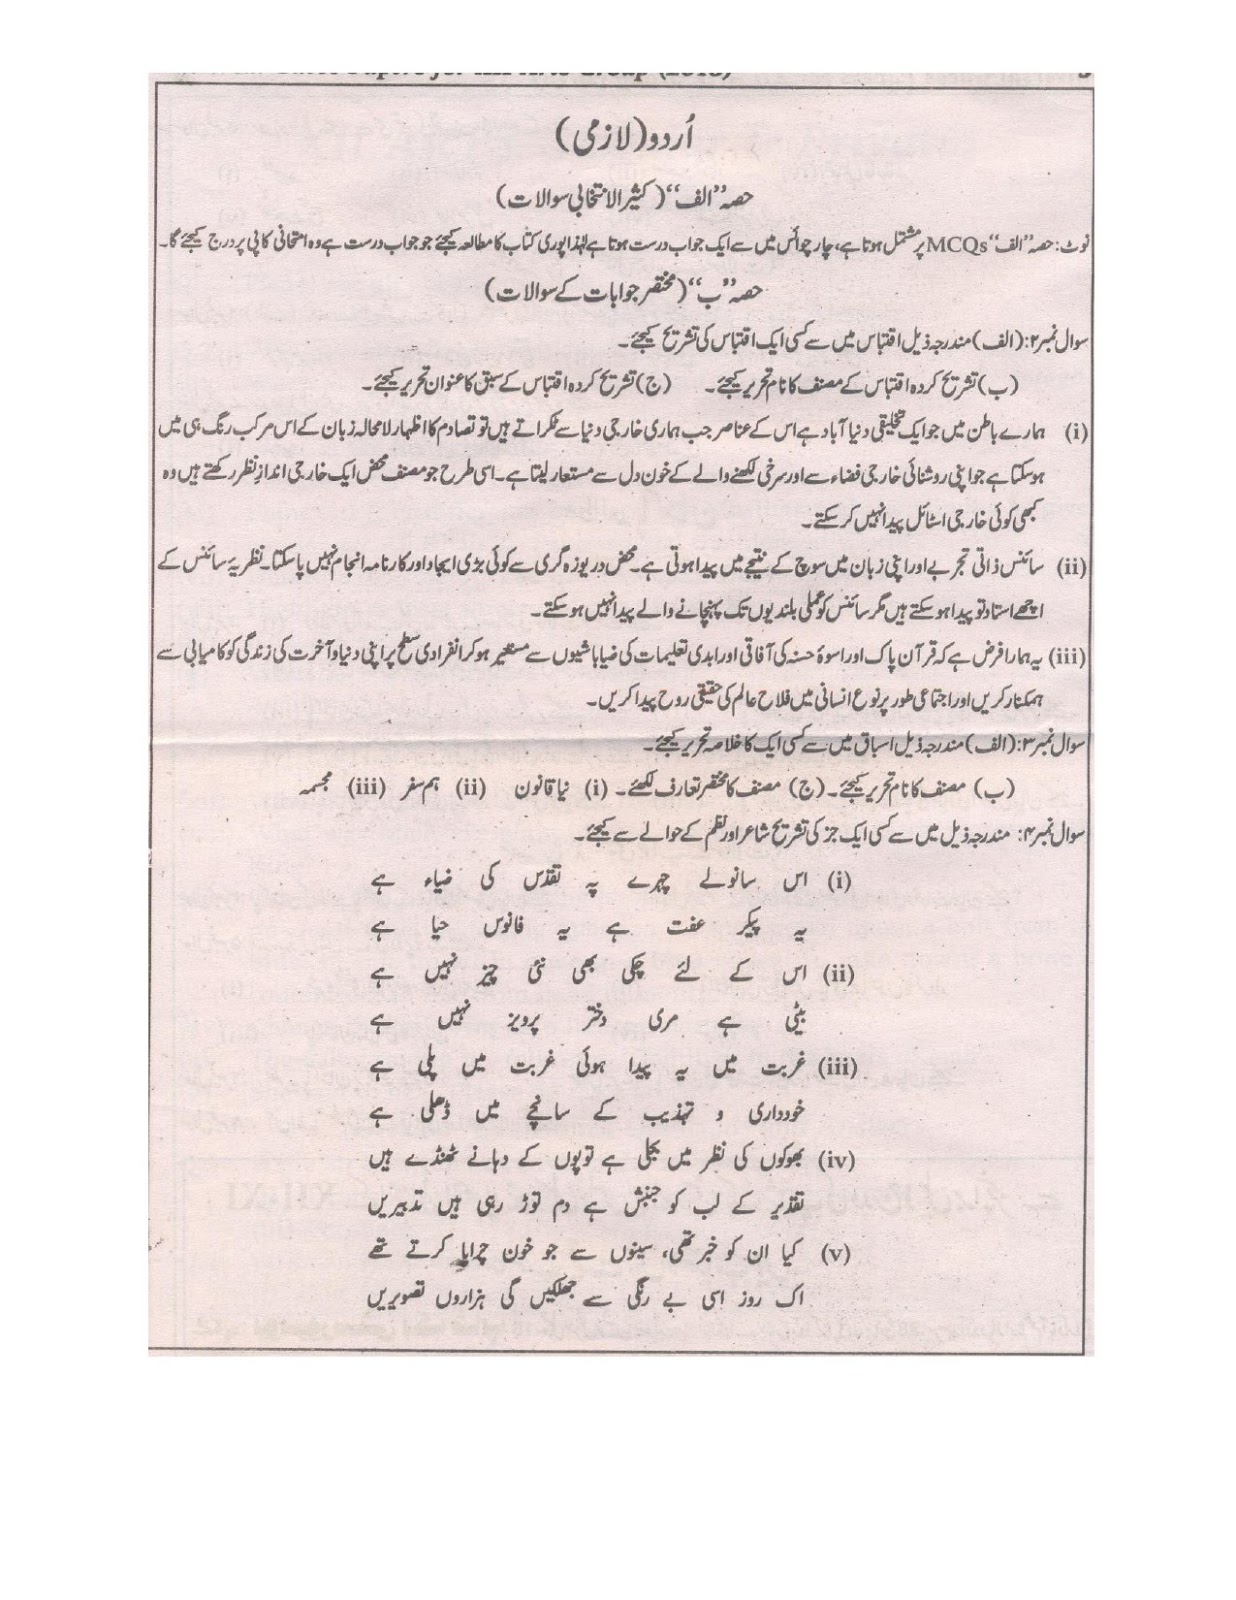 اُردو (لازمی)
حصہ ”الف“ (کثیر الانتخابی سوالات)
نوٹ: حصہ ”الف“ MCQs پر مشتمل ہوتا ہے، چار چوائس میں سے ایک جواب درست ہوتا ہے لہٰذا پوری کتاب کا مطالعہ کیجئے جو جواب درست ہے وہ امتحانی کاپی پر درج کیجئے گا۔
حصہ ”ب“ (مختصر جوابات کے سوالات)
سوال نمبر ۲: (الف) مندرجہ ذیل اقتباس میں سے کسی ایک اقتباس کی تشریح کیجئے۔
(ب) تشریح کردہ اقتباس کے مصنف کا نام تحریر کیجئے۔ (ج) تشریح کردہ اقتباس کے سبق کا عنوان تحریر کیجئے۔
(i) ہمارے باطن میں جو ایک تخلیقی دنیا آباد ہے اس کے عناصر جب ہماری خارجی دنیا سے ٹکراتے ہیں تو تصادم کا اظہار لامحالہ زبان کے اس مرکب رنگ ہی میں
ہوسکتا ہے جو اپنی روشنائی خارجی فضاء سے اور سرخی لکھنے والے کے خون دل سے مستعار لیتا ہے۔ اسی طرح جو مصنف محض ایک خارجی اندازِ نظر رکھتے ہیں وہ
کبھی کوئی خارجی اسٹائل پیدا نہیں کرسکتے۔
(ii) سائنس ذاتی تجربے اور اپنی زبان میں سوچ کے نتیجے میں پیدا ہوتی ہے۔ محض دریوزہ گری سے کوئی بڑی ایجاد اور کارنامہ انجام نہیں پاسکتا۔ نظریۂ سائنس کے
اچھے استاد تو پیدا ہوسکتے ہیں مگر سائنس کو عملی بلندیوں تک پہنچانے والے پیدا نہیں ہوسکتے۔
(iii) یہ ہمارا فرض ہے کہ قرآن پاک اور اسوۂ حسنہ کی آفاقی اور ابدی تعلیمات کی ضیا باشیوں سے مستعیر ہوکر انفرادی سطح پر اپنی دنیا و آخرت کی زندگی کو کامیابی سے
ہمکنار کریں اور اجتماعی طور پر نوع انسانی میں فلاح عالم کی حقیقی روح پیدا کریں۔
سوال نمبر ۳: (الف) مندرجہ ذیل اسباق میں سے کسی ایک کا خلاصہ تحریر کیجئے۔
(ب) مصنف کا نام تحریر کیجئے۔ (ج) مصنف کا مختصر تعارف لکھئے۔ (i) نیا قانون (ii) ہم سفر (iii) مجسمہ
سوال نمبر ۴: مندرجہ ذیل میں سے کسی ایک جز کی تشریح شاعر اور نظم کے حوالے سے کیجئے۔
(i) اس سانولے چہرے پہ تقدس کی ضیاء ہے
یہ پیکر عفت ہے یہ فانوس حیا ہے
(ii) اس کے لئے چکی بھی نئی چیز نہیں ہے
بیٹی ہے مری دختر پرویز نہیں ہے
(iii) غربت میں یہ پیدا ہوئی غربت میں پلی ہے
خودداری و تہذیب کے سانچے میں ڈھلی ہے
(iv) بھوکوں کی نظر میں بجلی ہے توپوں کے دہانے ٹھنڈے ہیں
تقدیر کے لب کو جنبش ہے دم توڑ رہی ہیں تدبیریں
(v) کیا ان کو خبر تھی، سینوں سے جو خون چرایا کرتے تھے
اک روز اسی بے رنگی سے جھلکیں گی ہزاروں تصویریں